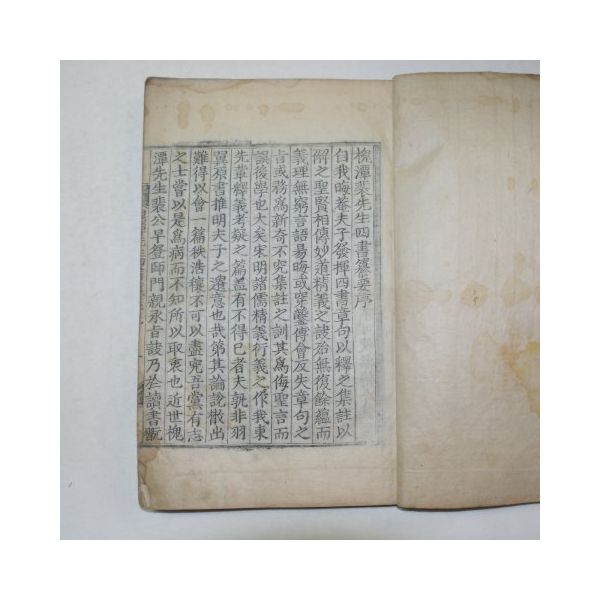 槐潭裴先生四書纂要序
自我晦菴夫子發揮四書章句以釋之集註以
附之聖賢相傳妙道精義之訣殆無復餘蘊而
義理無窮言語易晦或穿鑿傅會反失章句之
旨或務爲新奇不究集註之訓其爲侮聖言而
誤後學也大矣宋明諸儒精義衍義之作我東
先輩釋義考疑之篇盖有不得已者夫孰非羽
翼須書推明夫子之遺意也㢤第其論說散出
難得以會一篇秩浩穰不可以盡究吾黨有志
之士當以是爲病而不知所以取衷也近世槐
潭先生裴公早登師門親承旨諉乃於讀書翫